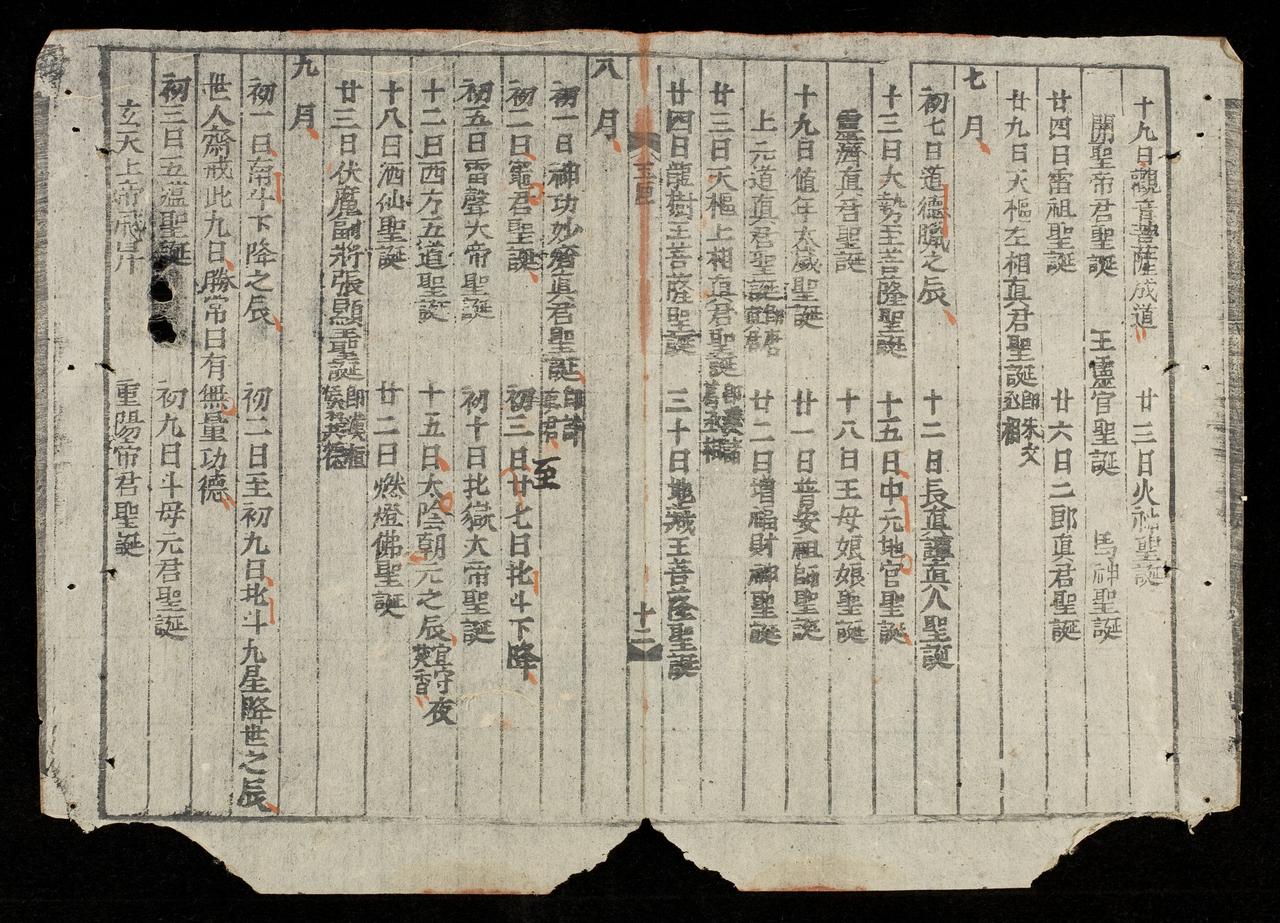 十九日觀音菩薩成道　廿三日火祖聖誕
關聖帝君聖誕　王靈官聖誕　馬神聖誕
廿四日雷祖聖誕　廿六日二郎真君聖誕
廿九日天樞左相真君聖誕即朱文丞相
七月
初七日道德臘之辰　十二日長真譚真人聖誕
十三日大勢至菩薩聖誕　十五日中元地官聖誕
靈濟真君聖誕　十八日王母娘娘聖誕
十九日值年太歲聖誕　廿一日普安祖師聖誕
上元道真君聖誕即唐　廿二日增福財神聖誕
廿三日天樞上相真君聖誕即漢諸葛丞相
廿四日龍樹王菩薩聖誕　三十日地藏王菩薩聖誕
十二
八月
初一日神功妙濟真君聖誕即許真君
初二日竈君聖誕　初三日至廿七日北斗下降
初五日雷聲大帝聖誕　初十日北嶽大帝聖誕
十二日西方五道聖誕　十五日太陰朝元之辰宜守夜焚香
十八日酒仙聖誕　廿二日燃燈佛聖誕
廿三日伏魔副將張顯王聖誕即漢桓侯翼德
九月
初一日南斗下降之辰　初二日至初九日北斗九星降世之辰
世人齋戒此九日勝常日有無量功德
初三日五瘟聖誕　初九日斗母元君聖誕
玄天上帝飛昇　重陽帝君聖誕